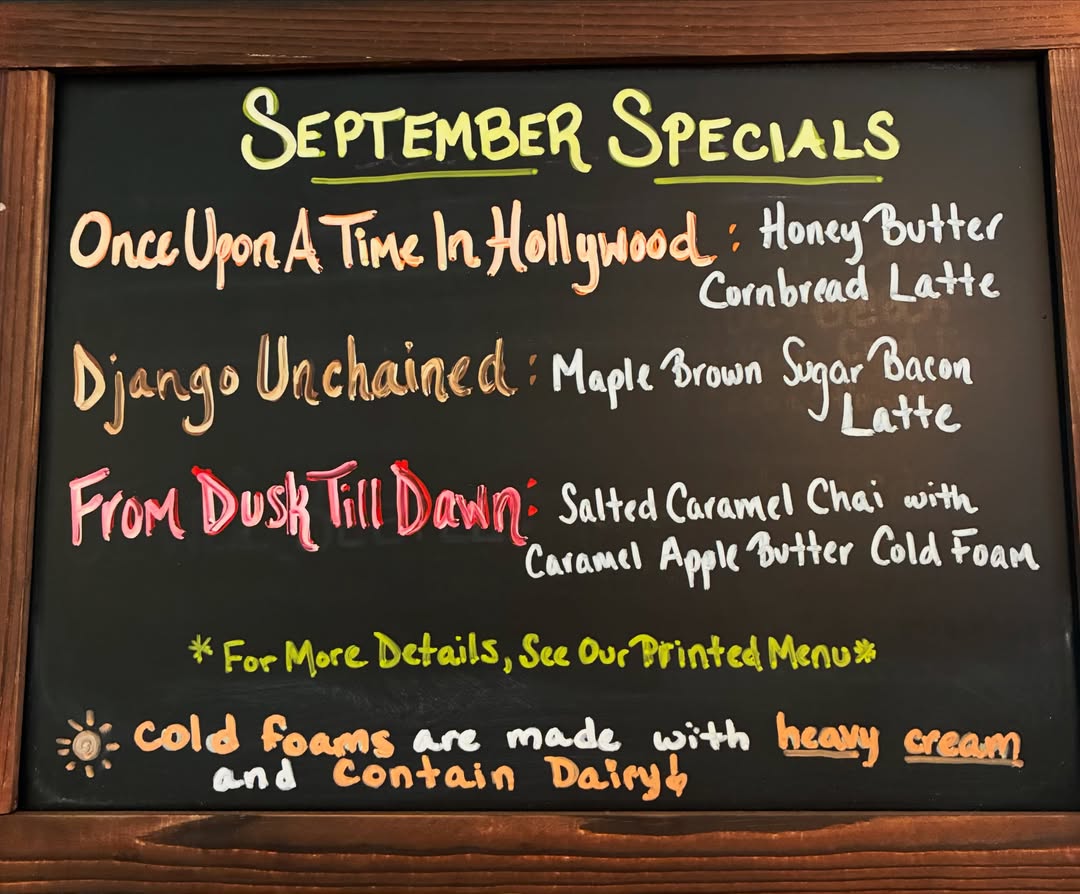 September Specials
Once Upon A Time In Hollywood : Honey Butter
Cornbread Latte
Django Unchained : Maple Brown Sugar Bacon
Latte
From Dusk Till Dawn: Salted Caramel Chai with
Caramel Apple Butter Cold Foam
*For More Details, See Our Printed Menu*
cold foams are made with heavy cream
and contain Dairy!